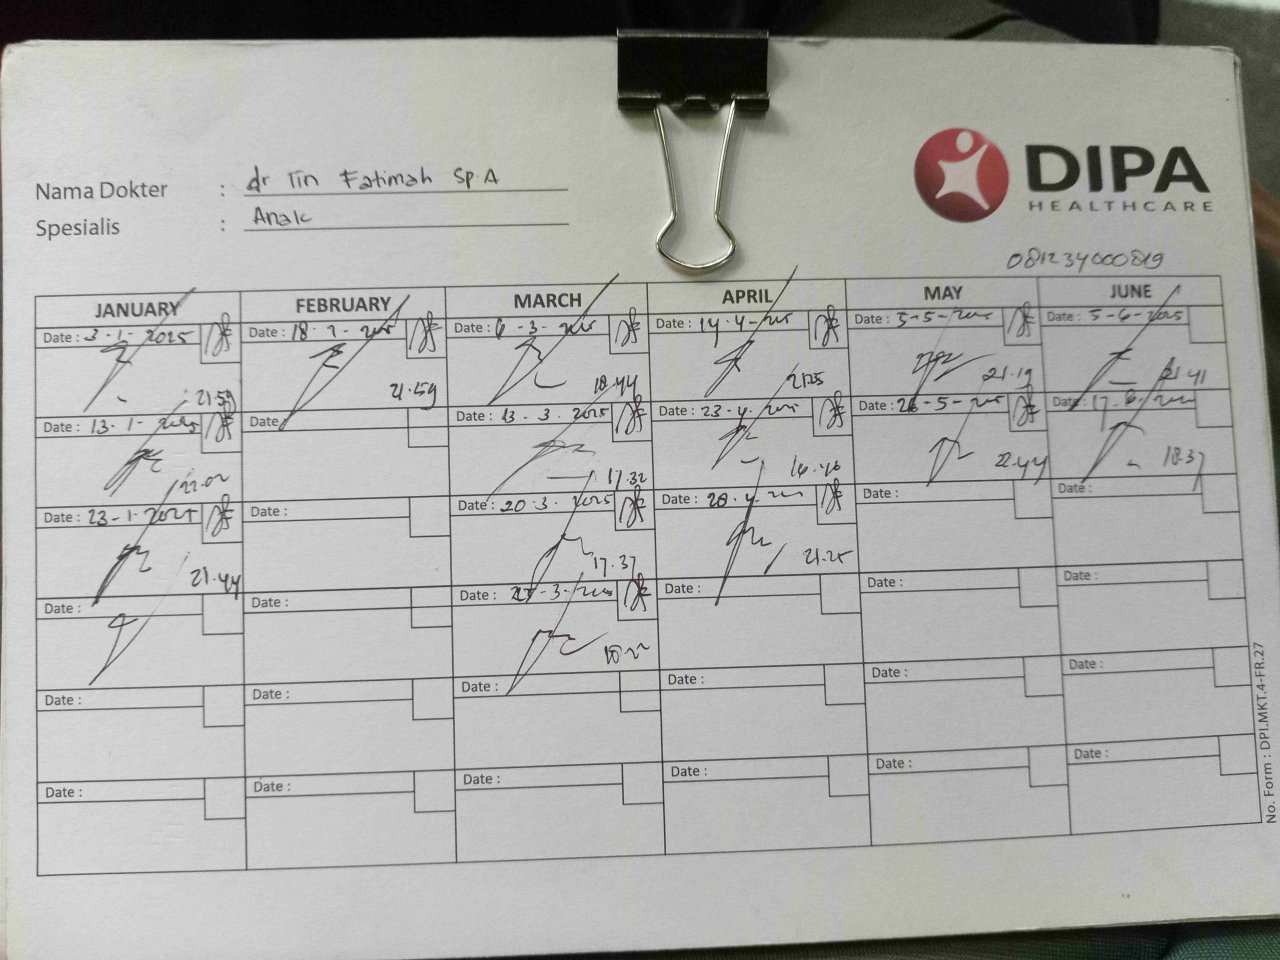 DIPA
HEALTHCARE
Nama Dokter : dr Iin Fatimah Sp.A
Spesialis : Anak
081234000819
JANUARY FEBRUARY MARCH APRIL MAY JUNE
Date : 3-1-2025 Date : 18-2-2025 Date : 6-3-2025 Date : 14-4-2025 Date : 5-5-2025 Date : 5-6-2025
21.59 21.59 18.44 2125 21.19 21.41
Date : 13-1-2025 Date : Date : 13-3-2025 Date : 23-4-2025 Date : 26-5-2025 Date : 17-6-2025
22.02 17.32 16.46 22.44 18.37
Date : 23-1-2025 Date : Date : 20-3-2025 Date : 28-4-2025 Date : Date :
21.44 17.37 21.25
Date : Date : Date : -3-2025 Date : Date : Date :
Date : Date : Date : Date : Date : Date :
Date : Date : Date : Date : Date : Date :
No. Form : DPI.MKT.4-FR.27